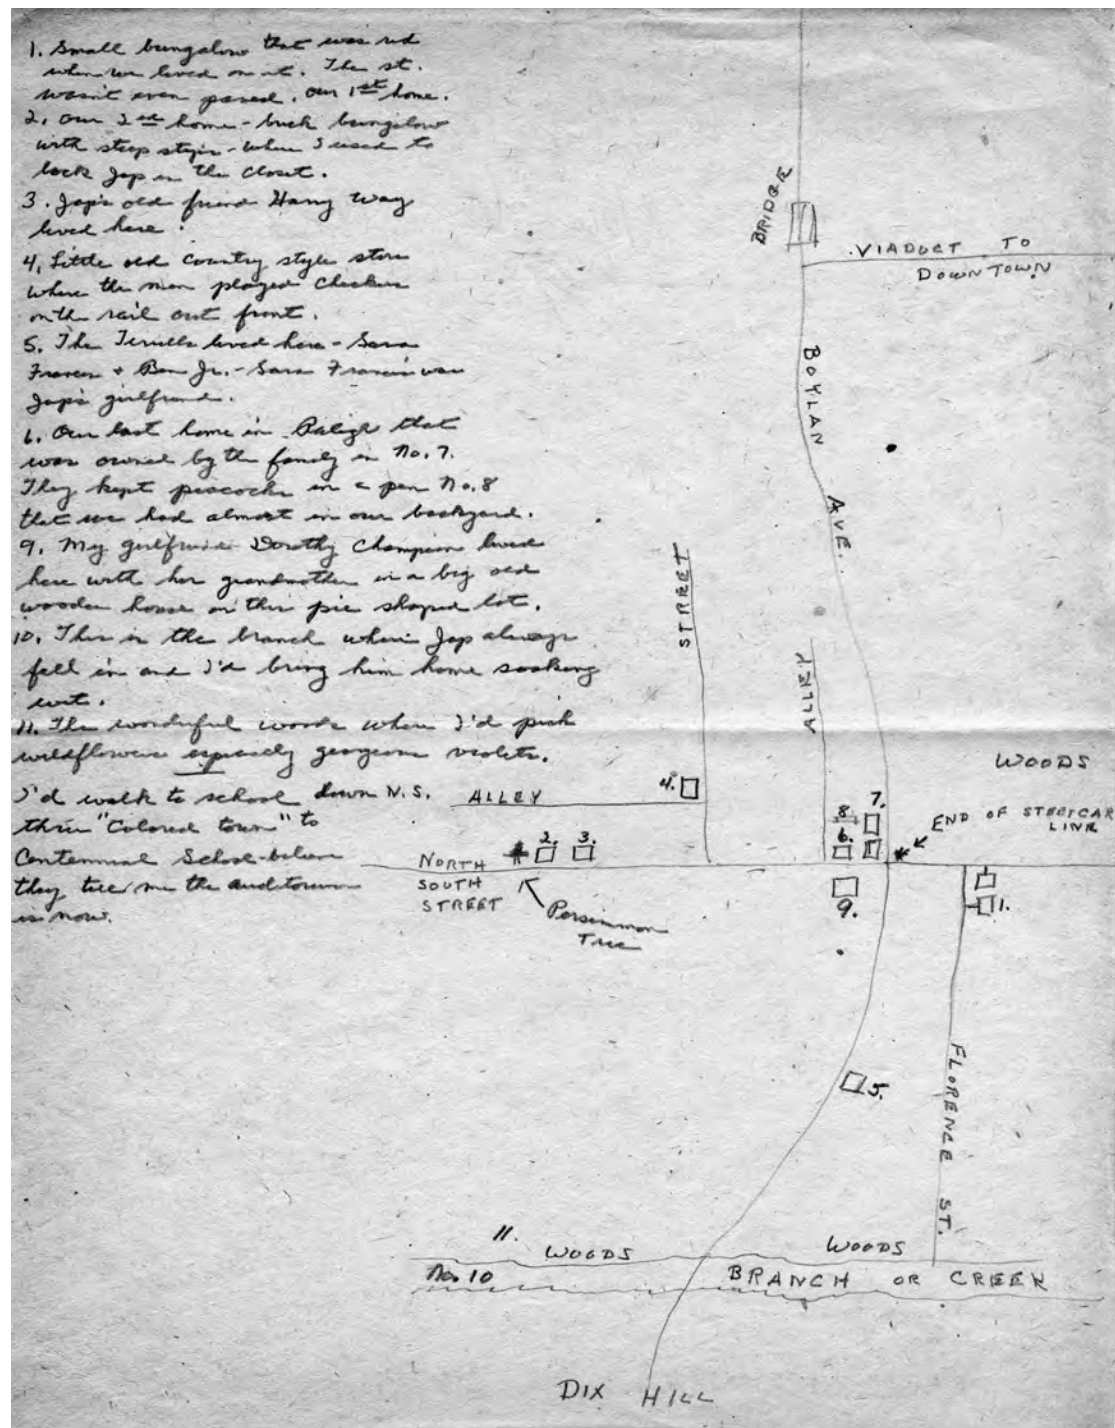 1. Small bungalow that was red
when we lived on it. The st.
wasn't even paved. Our 1st home.
2. Our 2nd home - brick bungalow
with steep steps - where I used to
lock Jap in the closet.
3. Jap's old friend Harry Way
lived here.
4. Little old country style store
where the men played checkers
on the rail out front.
5. The lived here - Sara
Frances + Ben Jr. - Sara Frances was
Jap's girlfriend.
6. Our last home in Raleigh that
was owned by the family in No. 7.
They kept peacocks in a pen No. 8
that we had almost in our backyard.
9. My girlfriend Dorothy Champion lived
here with her grandmother in a big old
wooden house on this pie shaped lot.
10. This is the branch where Jap always
fell in and I'd bring him home soaking
wet.
11. The wonderful woods where I'd pick
wildflowers especially gorgeous violets.
I'd walk to school down N.S.
thru "Colored town" to
Centennial School - believe
they tell me the auditorium
is now.
BRIDGE
VIADUCT TO
DOWNTOWN
BOYLAN AVE.
STREET
ALLEY
WOODS
4.
ALLEY
7.
8
6.
END OF STREETCAR
LINE
2.
3.
NORTH
SOUTH
STREET
Persimmon
Tree
9.
1.
5.
FLORENCE ST.
11.
WOODS
WOODS
No. 10
BRANCH OR CREEK
DIX HILL